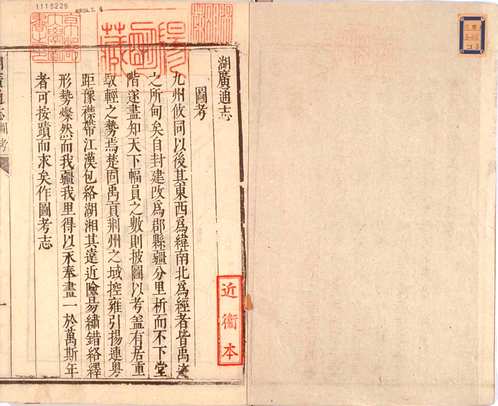 1118226
湖廣通志
圖考
九州攸同以後其東西為緯南北為經者皆禹
之所甸矣自封建改為郡縣疆分里析而不下堂
階遂盡知天下幅員之數則披圖以考葢有若重
馭輕之勢焉楚固禹貢荆州之域控雍引揚連粵
距豫襟帶江漢包絡湖湘其遠近險易繡錯絡繹
形勢燦然而我疆我里得以永奉畫一於萬斯年
者可按蹟而求矣作圖考志
近衞本